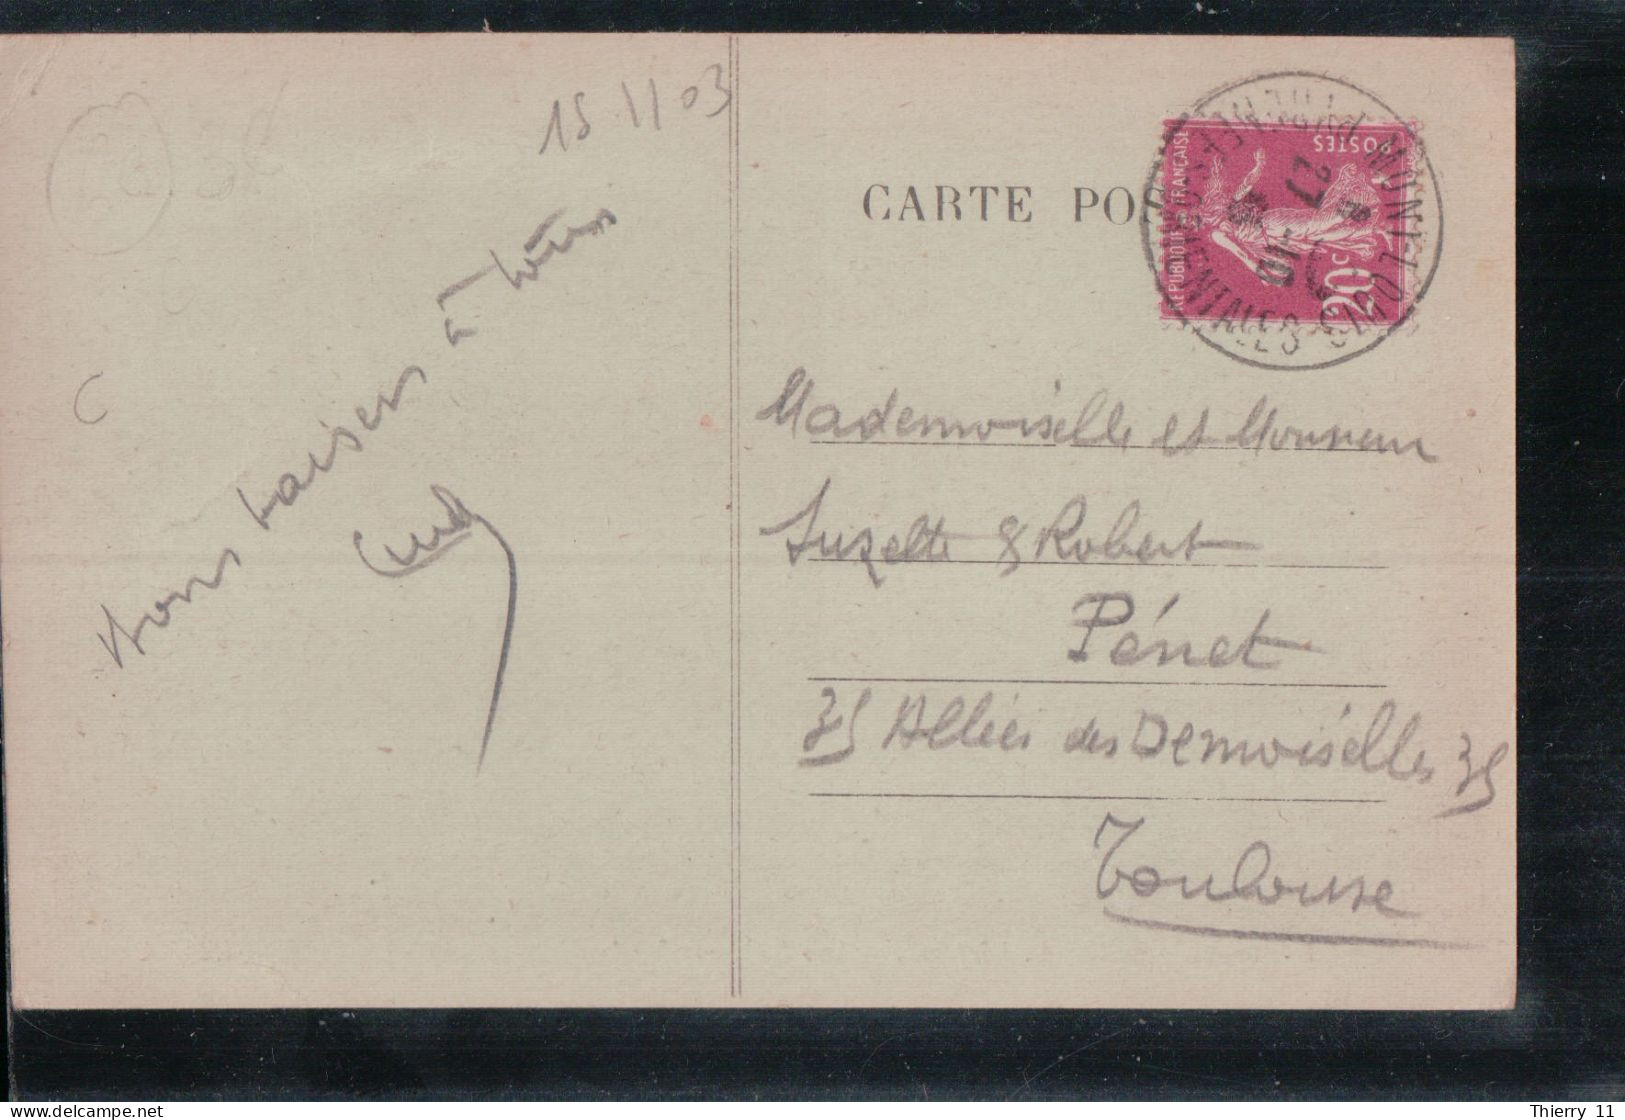 15 11 03
Bons baisers à tous
C
CARTE PO
RÉPUBLIQUE FRANÇAISE
POSTES
20c
MONT-LOUIS
PYRENEES-ORIENTALES
27
-10
Mademoiselle et Monsieur
Suzette & Robert
Pénet
35 Allées des Demoiselles 35
Toulouse
Thierry 11